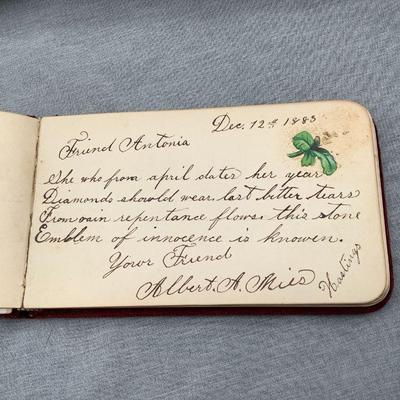 Dec. 12th 1883
Friend Antonia
She who from april dates her year
Diamonds should wear last bitter tears
From vain repentance flows this stone
Emblem of innocence is knowen.
Your Friend
Albert. A. Mies
Hastings